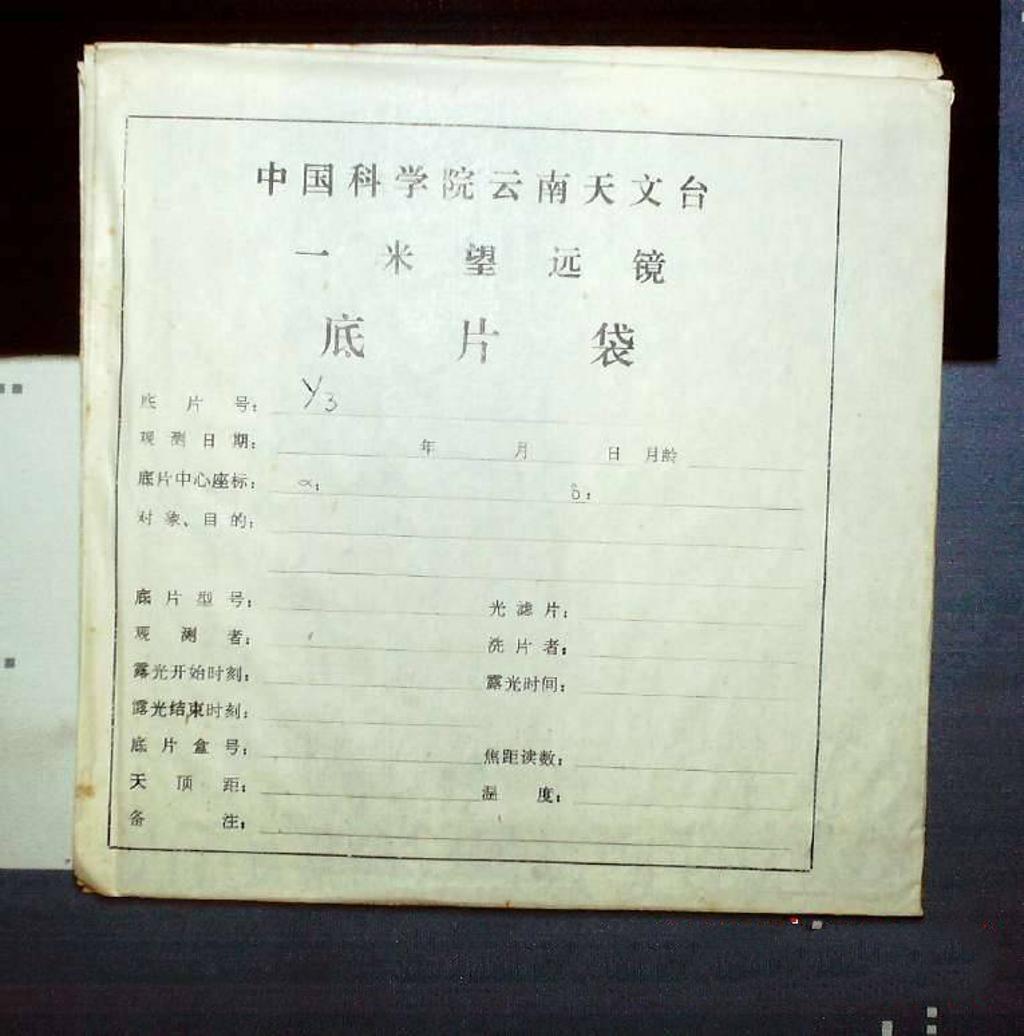 中国科学院云南天文台
一米望远镜
底片袋
底片号： Y3
观测日期： 年 月 日 月龄
底片中心座标： α： δ：
对象、目的：
底片型号： 光滤片：
观测者： 洗片者：
露光开始时刻： 露光时间：
露光结束时刻：
底片盒号： 焦距读数：
天顶距： 温度：
备注：